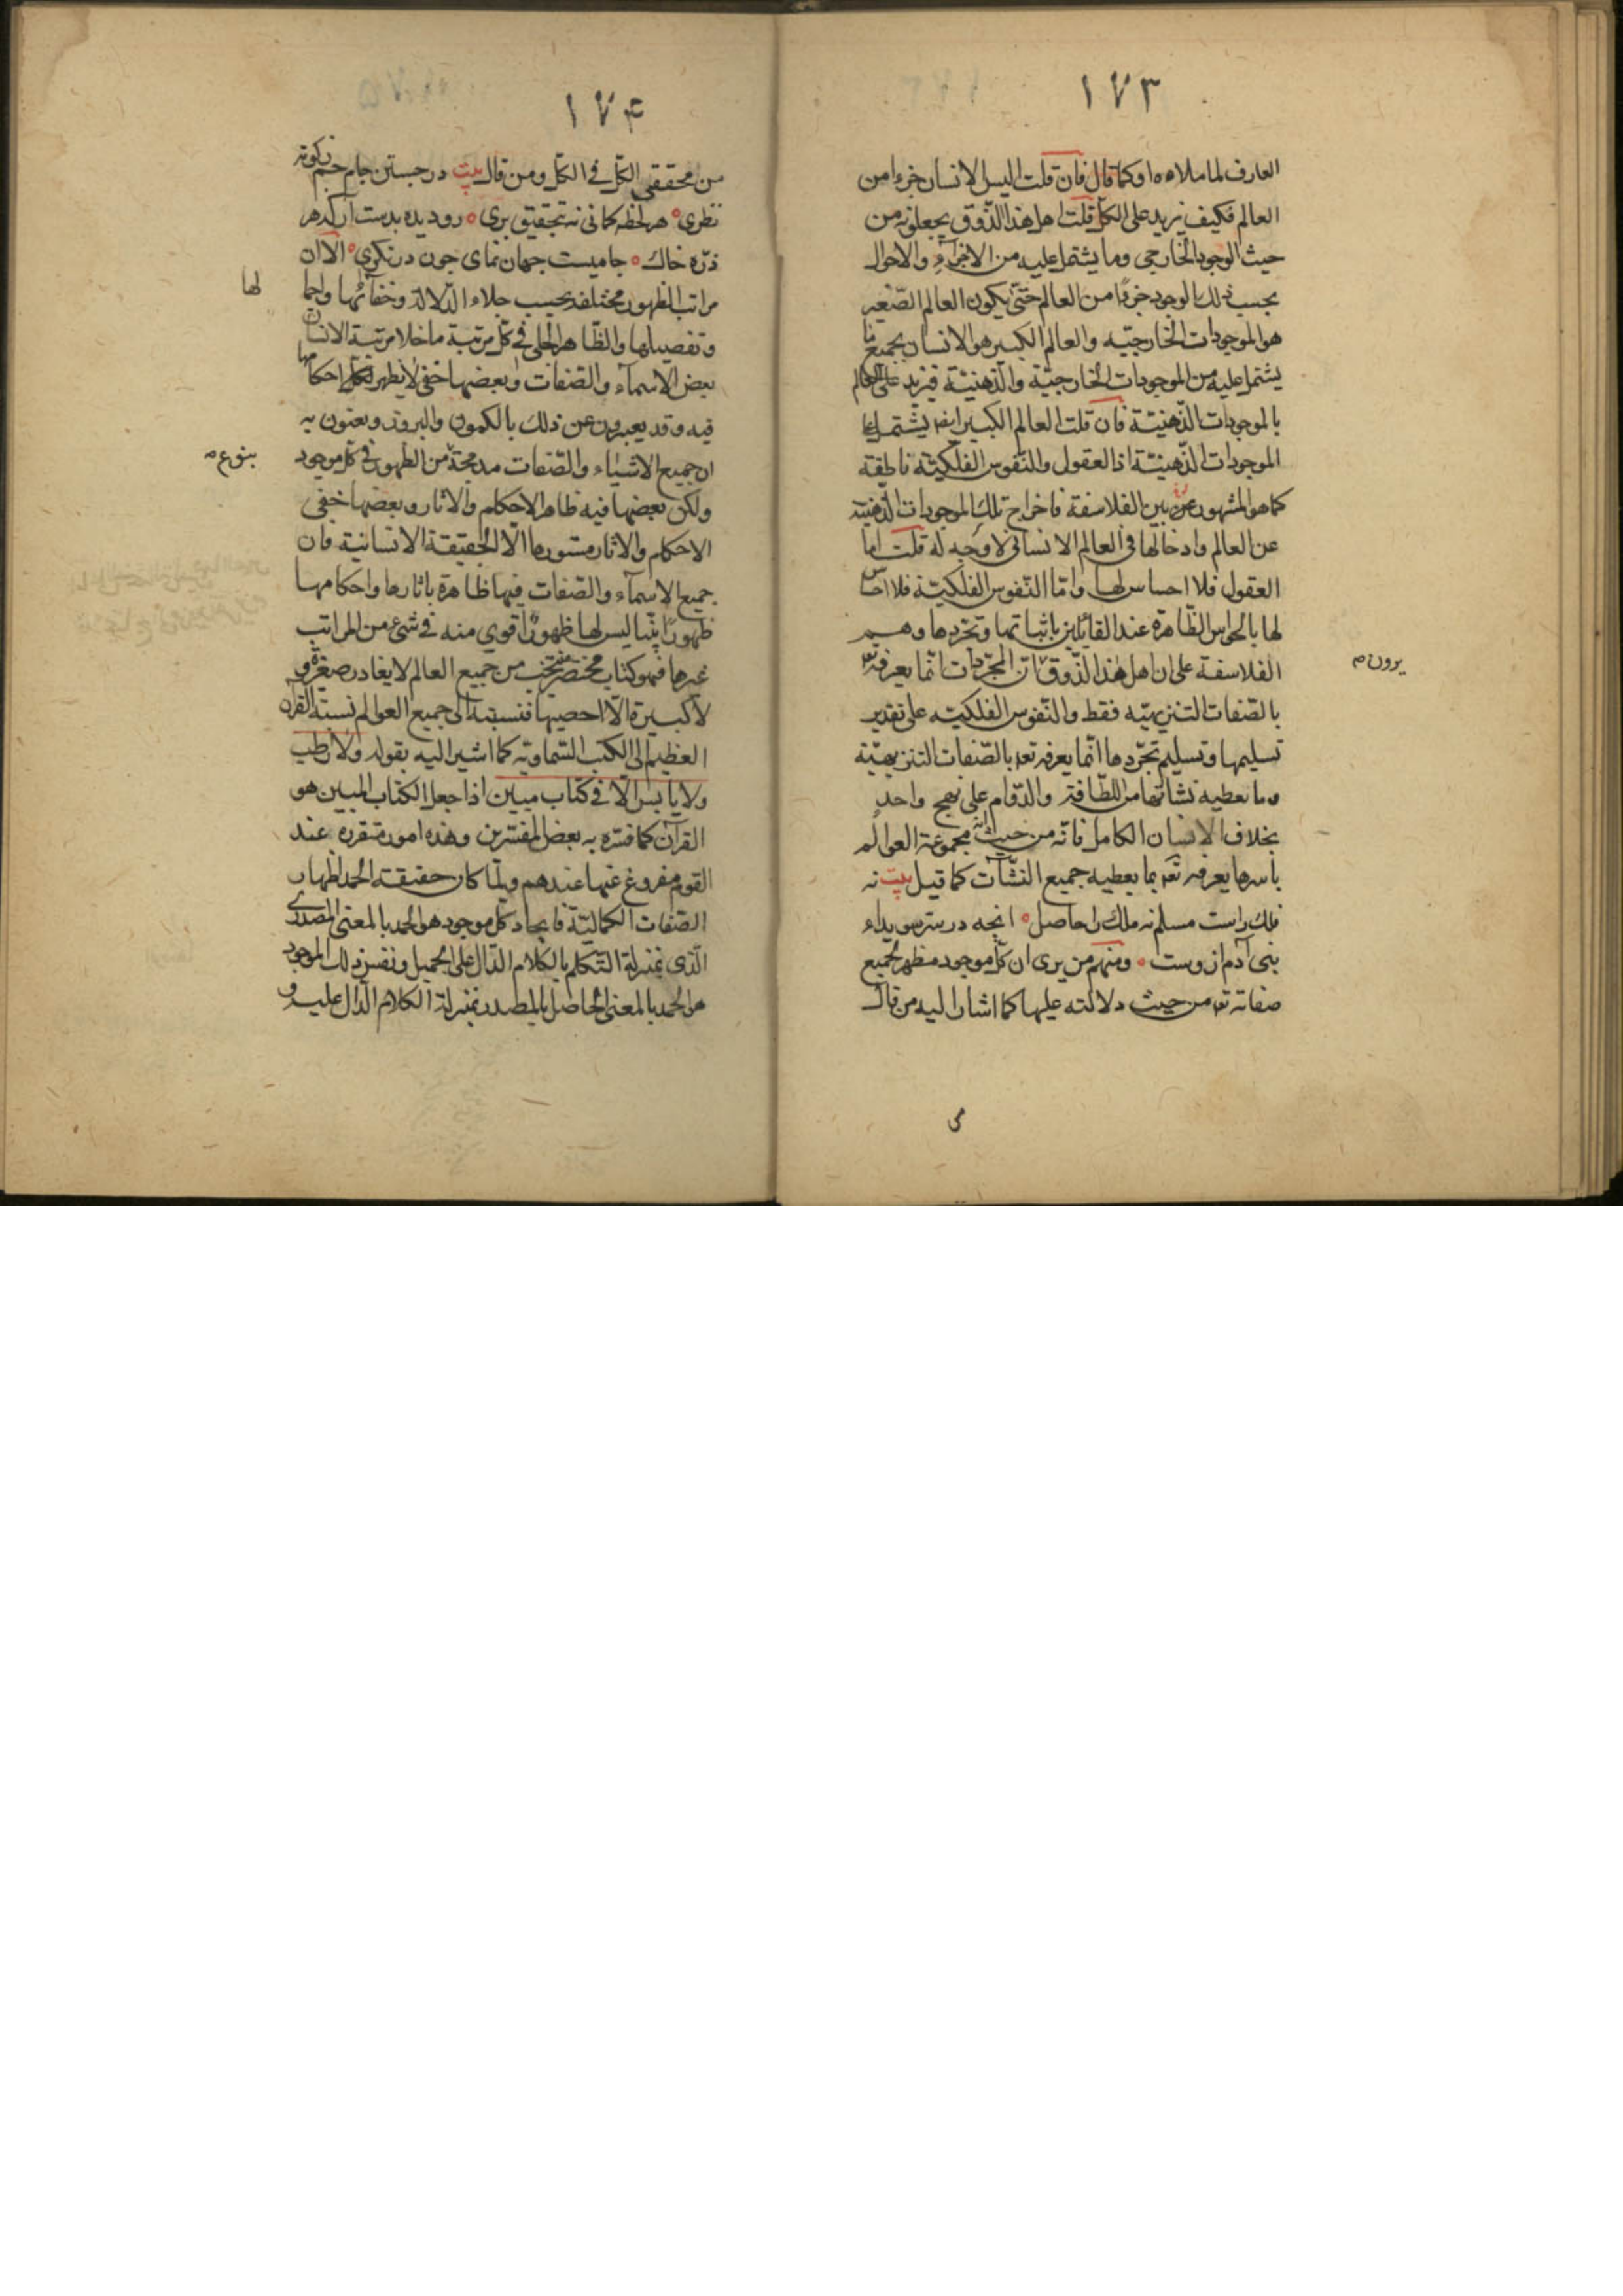 ١٧٣
العارف لما ملاءه او كما قال فان قلت اليس الانسان جزءا من
العالم فكيف يزيد على الكل قلت اهل هذا الذوق يجعلونه من
حيث الوجود الخارجي وما يشتمل عليه من الاجزاء والاحوال
بحسب ذلك الوجود جزءًا من العالم حتى يكون العالم الصّغير
هو الموجودات الخارجيّه والعالم الكبير هو الانسان بجميع ما
يشتمل عليه من الموجودات الخارجيّة والذّهنيّة فيزيد على العالم
بالموجودات الذّهنيّة فان قلت العالم الكبير ايضا يشتمل على
الموجودات الذّهنيّة اذ العقول والنّفوس الفلكيّة ناطقة
كما هو المشهور بين الفلاسفة فاخراج تلك الموجودات الذّهنيّة
عن العالم وادخالها في العالم الانسانى لا وجه له قلت اما
العقول فلا احساس لها وامّا النّفوس الفلكيّة فلا احساس
لها بالحواس الظّاهرة عند القائلين باثباتها وتجرّدها وهم
الفلاسفة على ان اهل هذا الذّوق انّ المجرّدات انّما يعرفه تع
يرون م
بالصّفات التنزيهيّه فقط والنّفوس الفلكيّه على تقدير
تسليمها وتسليم تجرّدها انّما يعرفه تع بالصّفات التنزيهيّة
وما تعطيه نشأتها من اللطافة والدّوام على نهج واحد
بخلاف الانسان الكامل فانّه من حيث انّه مجموعة العوالم
باسرها يعرفه تع بما يعطيه جميع النشّآت كما قيل بيت نه
فلك راست مسلم نه ملك را حاصل ه انچه در سرّ سويداء
بنى آدم ازوست ه ومنهم من يرى ان كلّ موجود مظهر لجميع
صفاته تع من حيث دلالته عليها كما اشار اليه من قال
١٧۴
من محققي الكلّ في الكلّ ومن قال بيت در جستن جام جم ز كوته
نظرى ه هر لحظه كمانى نه بتحقيق برى ه رو ديده بدست ار كه هر
ذرّه خاك ه جاميست جهان نماى چون در نكرى ه الا ان
مراتب الظهور مختلفة بحسب جلاء الدّلالة وخفائها واجما
لها
وتفصيلها والظّاهر الجلي في كلّ مرتبة ما خلا مرتبة الانسان
بعض الاسماء والصّفات وبعضها خفى لا يظهر احكامها
فيه وقد يعبرون عن ذلك بالكمون والبروز ويعنون به
ان جميع الاشياء والصّفات مندمجة من الظهور في كلّ موجود
بنوع م
ولكن بعضها فيه ظاهر الاحكام والاثار وبعضها خفى
الاحكام والاثار مستورها الّا الحقيقة الانسانية فان
جميع الاسماء والصّفات فيها ظاهرة باثارها واحكامها
ظهورًا بيّنا ليس لها ظهورًا اقوى منه في شئ من المراتب
غيرها فهو كتاب مختصر منتخب من جميع العالم لا يغادر صغيرة و
لا كبيرة الّا احصيها فنسبته الى جميع العوالم نسبة القرآن
العظيم الى الكتب السّماويّه كما اشير اليه بقوله ولا رطب
ولا يابس الّا في كتاب مبين اذا جعل الكتاب المبين هو
القرآن كما فسّره به بعض المفسّرين وهذه امور متقرره عند
القوم مفروغ عنها عندهم ولمّا كان حقيقة الحمد اظهار
الصّفات الكماليّة فايجاد كلّ موجود هو الحمد بالمعنى المصدرى
الّذى بمنزلة التّكلم بالكلام الدّال على الجميل ونفس ذلك الموجود
هو الحمد بالمعنى الحاصل بالمصدر بمنزلة الكلام الدّال عليه و